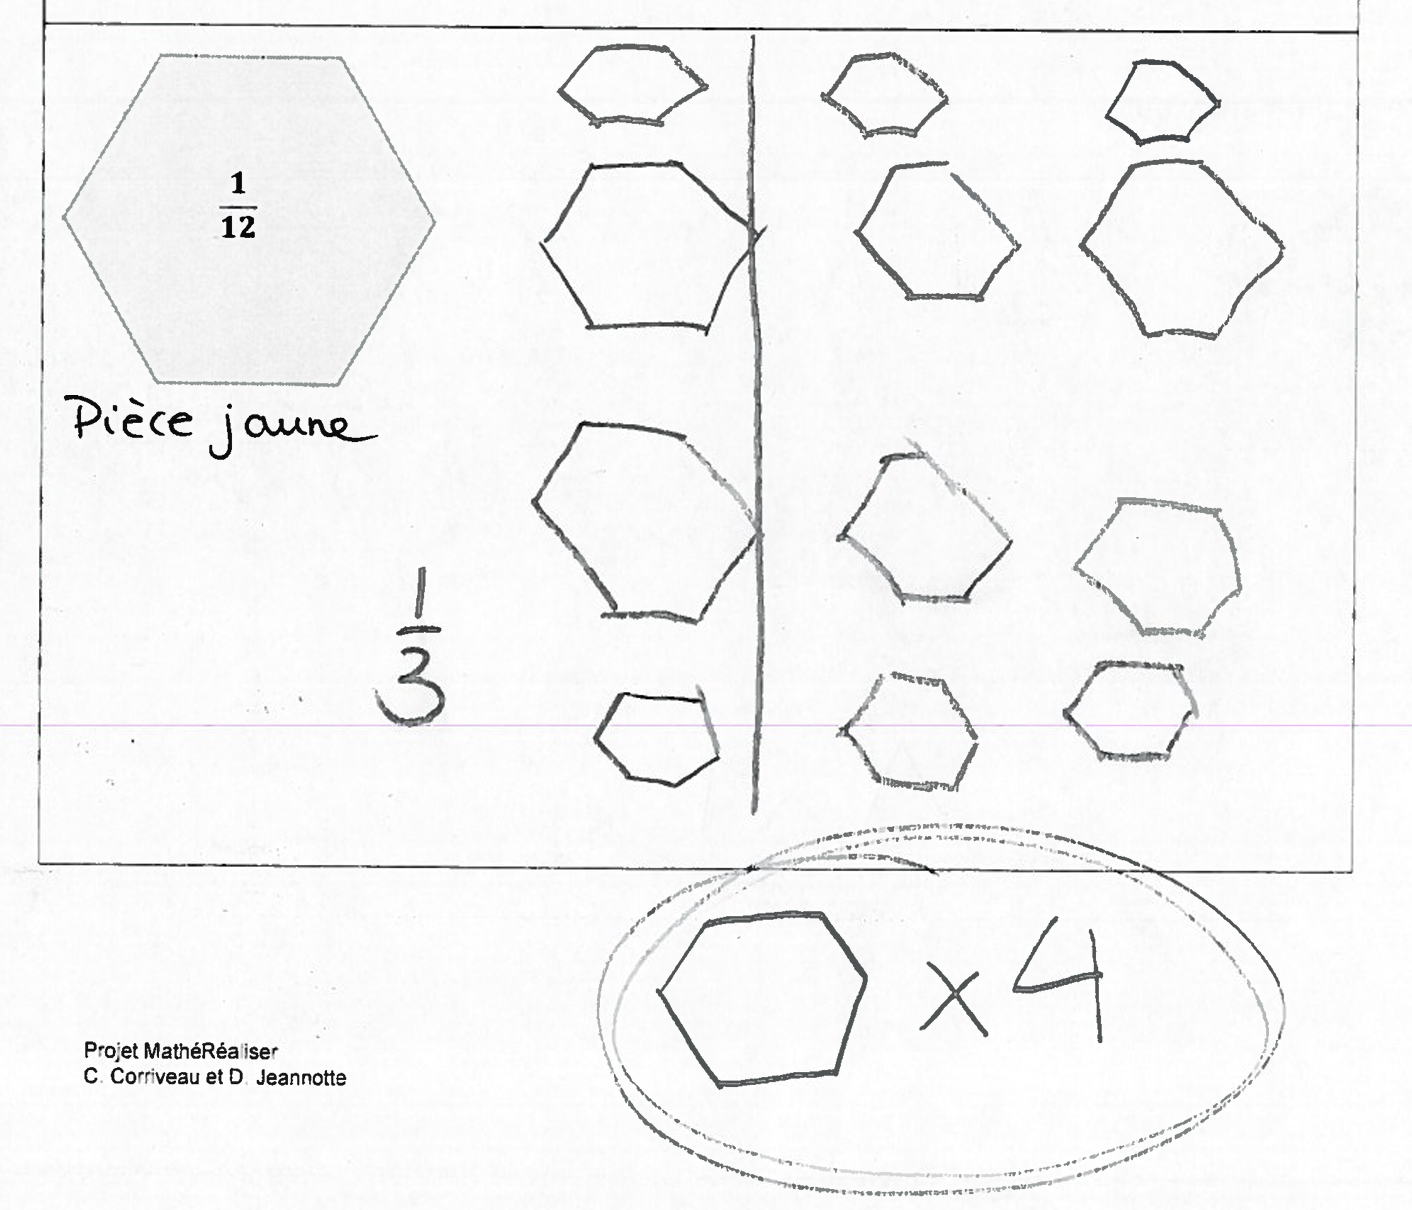 1
12
Pièce jaune
1
3
x 4
Projet MathéRéaliser
C. Corriveau et D. Jeannotte